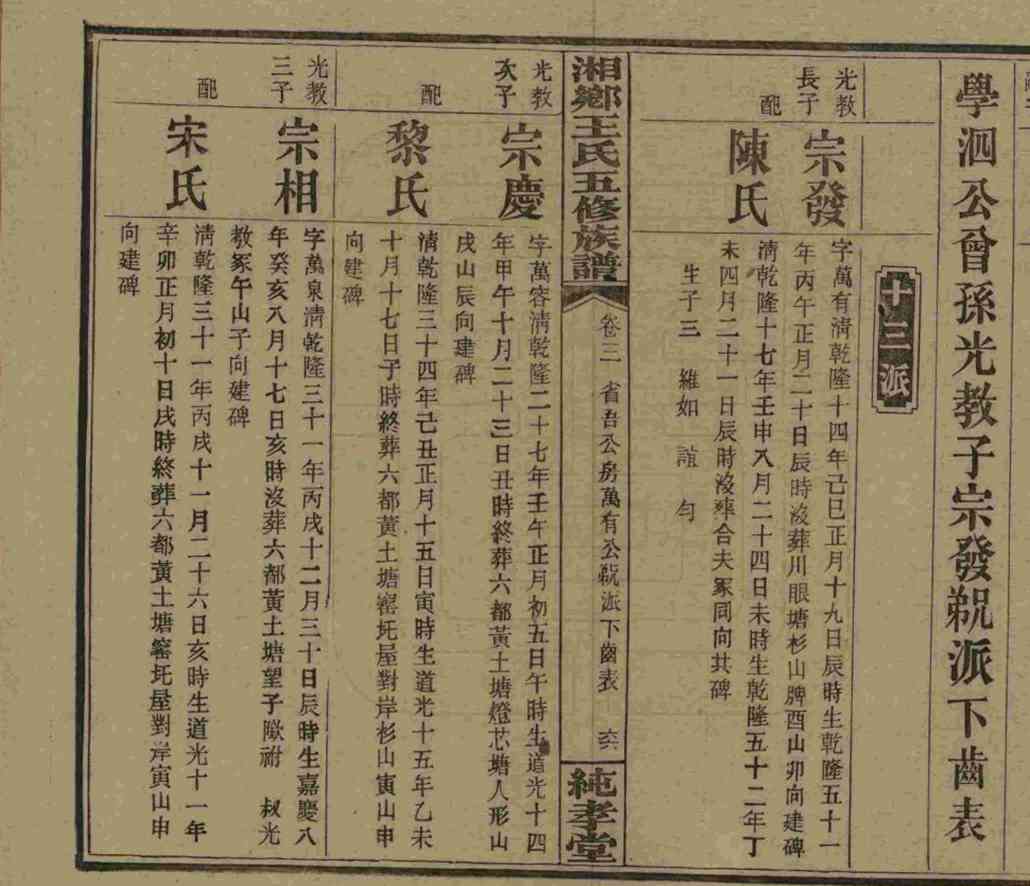 學泗公曾孫光教子宗發派下齒表
十三派
光教
長子
宗發
字萬有清乾隆十四年己巳正月十九日辰時生乾隆五十一
年丙午正月二十日辰時沒葬川眼塘杉山脾酉山卯向建碑
配
陳氏
清乾隆十七年壬申八月二十四日未時生乾隆五十二年丁
未四月二十一日辰時沒葬合夫冢同向共碑
生子三 維如 誼 勻
湘鄉王氏五修族譜
卷三 省吾公房萬有公派下齒表 六六
純孝堂
光教
次子
宗慶
字萬容清乾隆二十七年壬午正月初五日午時生道光十四
年甲午十月二十三日丑時終葬六都黃土塘燈芯塘人形山
戌山辰向建碑
配
黎氏
清乾隆三十四年己丑正月十五日寅時生道光十五年乙未
十月十七日子時終葬六都黃土塘窰圫屋對岸杉山寅山申
向建碑
光教
三子
宗相
字萬泉清乾隆三十一年丙戌十二月三十日辰時生嘉慶八
年癸亥八月十七日亥時沒葬六都黃土塘望子墩祔 叔光
教冢午山子向建碑
配
宋氏
清乾隆三十一年丙戌十一月二十六日亥時生道光十一年
辛卯正月初十日戌時終葬六都黃土塘窰圫屋對岸寅山申
向建碑